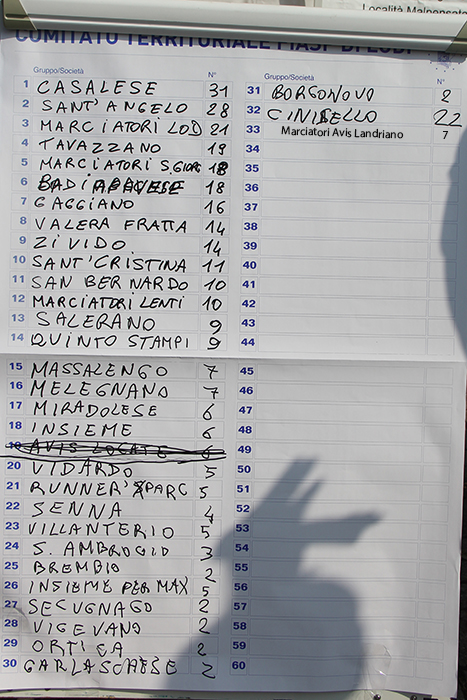 Località Malpensat
COMITATO TERRITORIALE FIASP DI LODI
Gruppo/Società N°
1 CASALESE 31
2 SANT'ANGELO 28
3 MARCIATORI LOD 21
4 TAVAZZANO 19
5 MARCIATORI S.GIOR 18
6 BADIA PAVESE 18
7 GAGGIANO 16
8 VALERA FRATTA 14
9 ZIVIDO 14
10 SANT'CRISTINA 11
11 SAN BERNARDO 10
12 MARCIATORI LENTI 10
13 SALERANO 9
14 QUINTO STAMPI 9
15 MASSALENGO 7
16 MELEGNANO 7
17 MIRADOLESE 6
18 INSIEME 6
19 AVIS LOCATE 6
20 VIDARDO 5
21 RUNNER'SPARC 5
22 SENNA 4
23 VILLANTERIO 5
24 S. AMBROGIO 3
25 BREMBIO 2
26 INSIEME PER MAX 5
27 SECUGNAGO 2
28 VIGEVANO 2
29 ORTICA 2
30 GARLASCHESE 2
Gruppo/Società N°
31 BORGONOVO 2
32 CINISELLO 22
33 Marciatori Avis Landriano 7
34
35
36
37
38
39
40
41
42
43
44
45
46
47
48
49
50
51
52
53
54
55
56
57
58
59
60